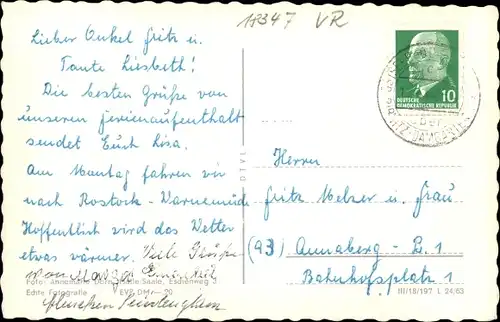 18347 VR
Lieber Onkel Fritz u.
Tante Liesbeth!
Die besten Grüße von
unseren Ferienaufenthalt
sendet Euch Lisa.
Am Montag fahren wir
nach Rostock-Warnemünde
Hoffentlich wird das Wetter
etwas wärmer. Viele Grüße
von
Foto:
Echte Fotografie EVP DM -.20
DEUTSCHE
DEMOKRATISCHE REPUBLIK 10
Herrn
Fritz Melzer u. Frau
(93) Annaberg-B. 1
Bahnhofsplatz 1
III/18/197 L 24/63